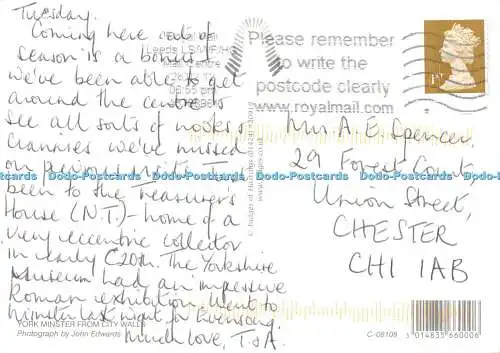 Tuesday.
Coming here out of
season is a bonus –
we've been able to get
around the centre &
see all sorts of nooks &
crannies we've missed
on previous visits. I've
been to the Treasurer's
House (N.T.) – home of a
very eccentric collector
in early C20th. The Yorkshire
Museum had an impressive
Roman exhibition. Went to
Minster last night for Evensong.
Much love, T & A.
YORK MINSTER FROM CITY WALLS
Photograph by John Edwards
Mail Centre
Please remember
to write the
postcode clearly
www.royalmail.com
1ST
Mrs A. E. Spencer,
29 Forest Court,
Union Street,
CHESTER
CH1 1AB
© Judges of Hastings
www.judges.co.uk
C-08108
5 014835 660006
Dodo-Postcards Dodo-Postcards Dodo-Postcards Dodo-Postcards Dodo-Postcards Dodo-Postcards